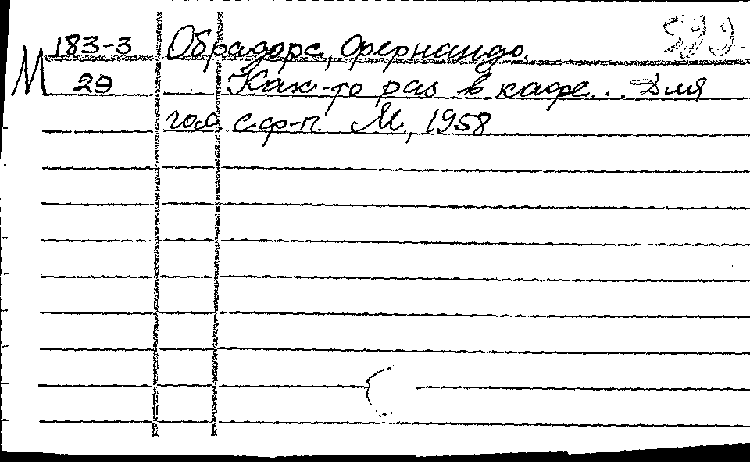 М 183-3 Обрадорс, Фернандо.
29 Как-то раз в кафе... Для
гол. с ф-п. М., 1958